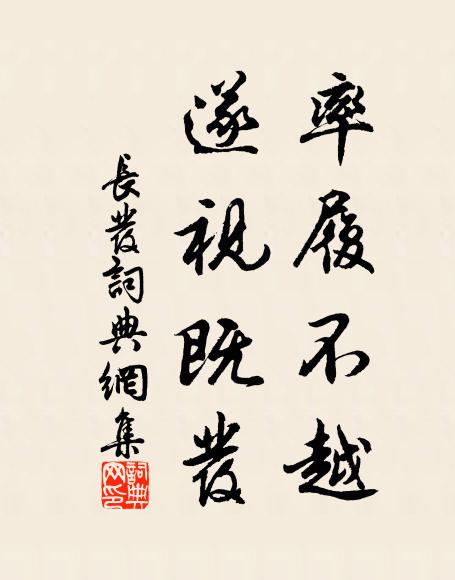 率履不越
遂視既發
長發詞典網集
詞典网印